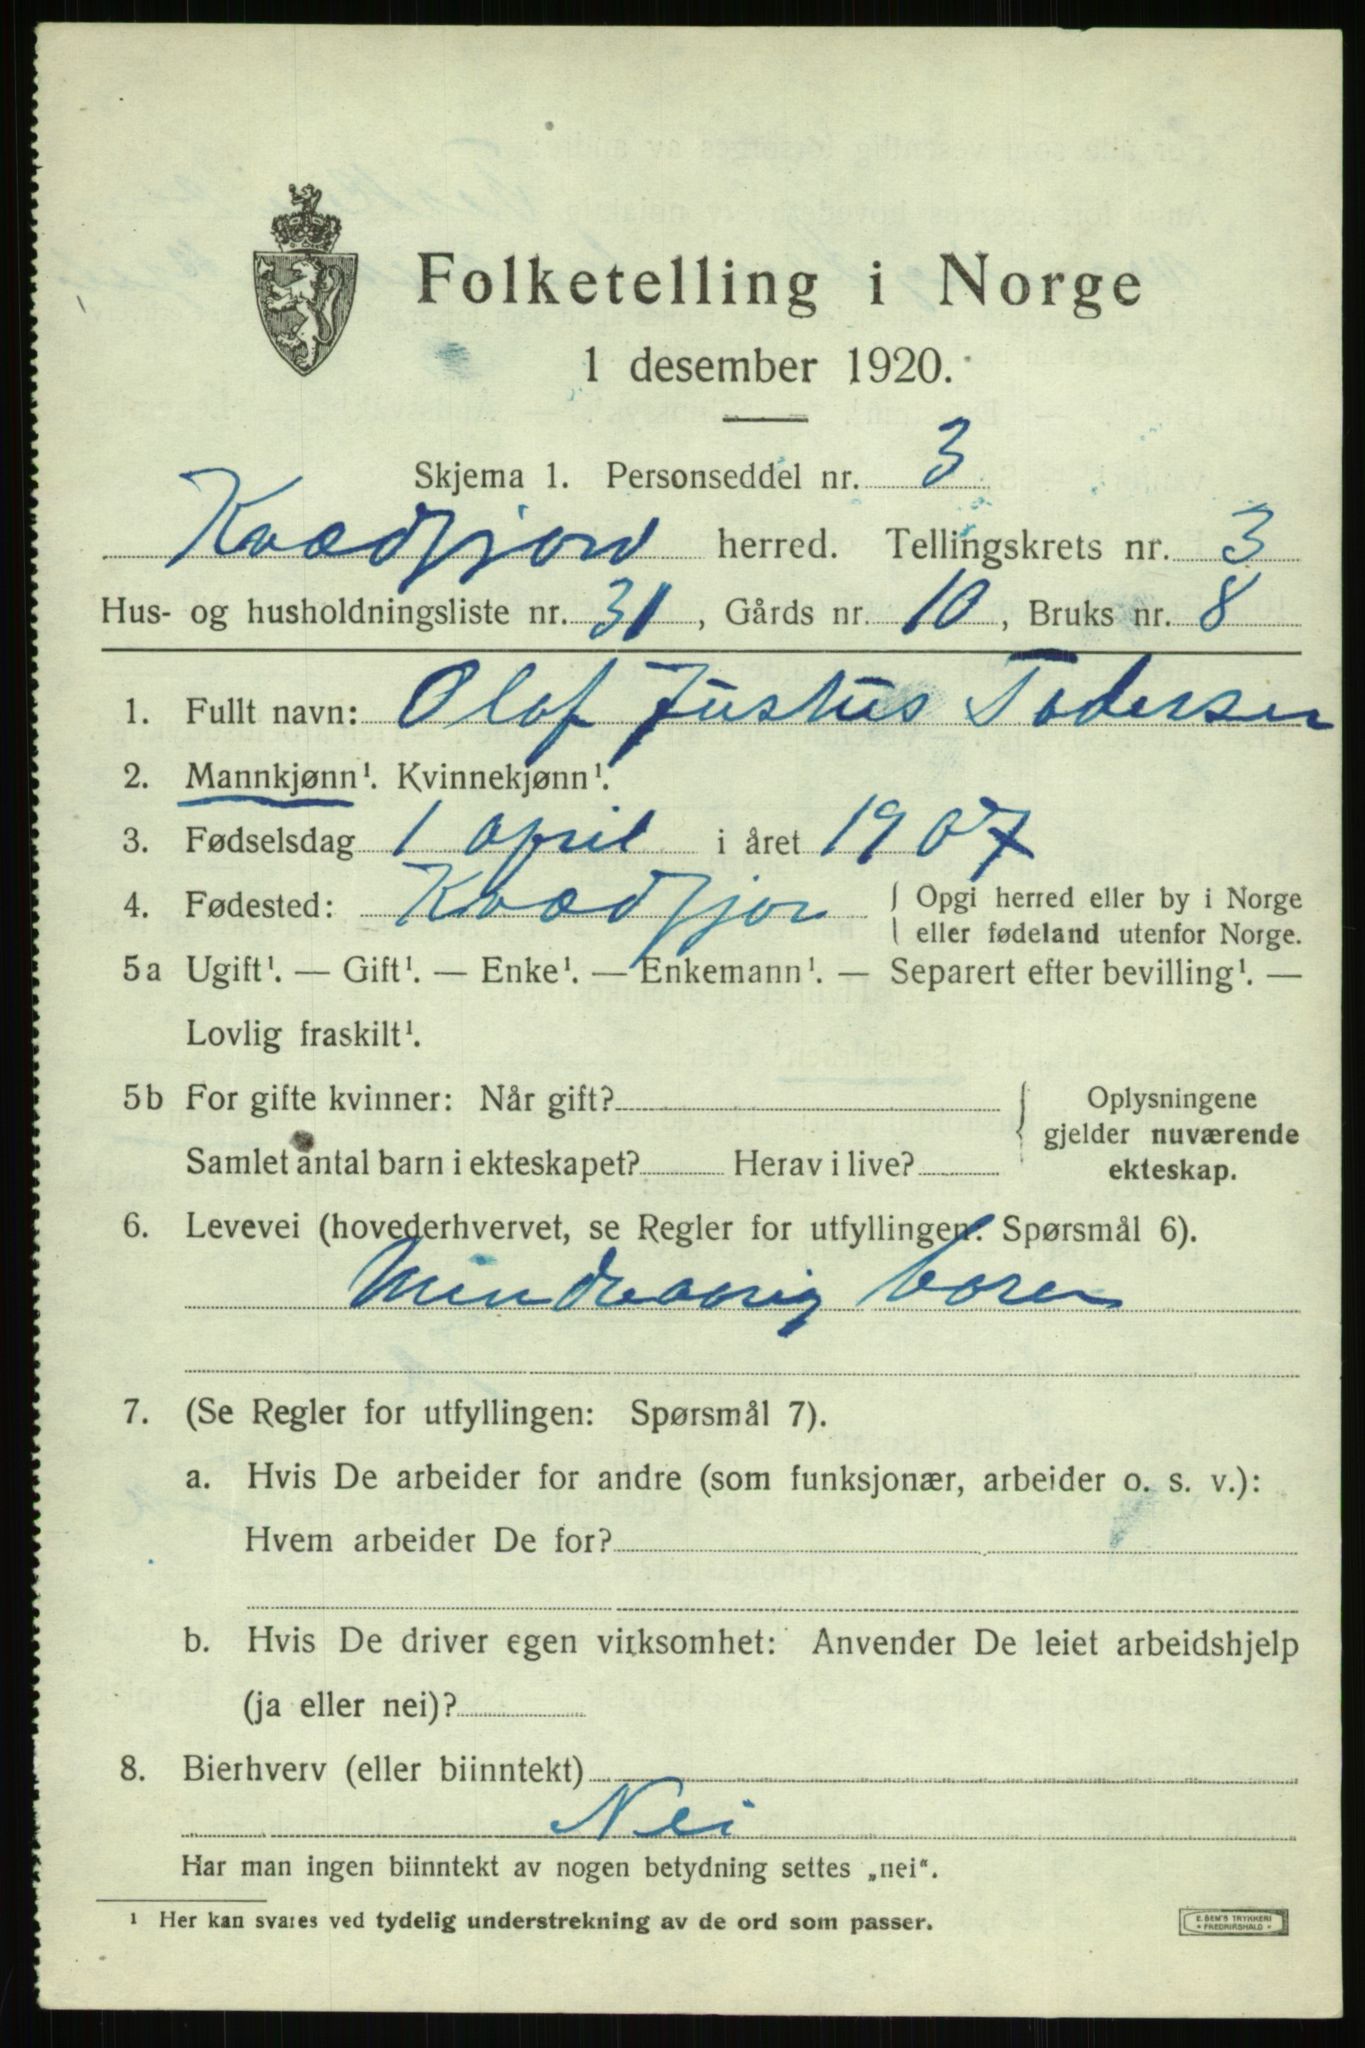 Folketelling i Norge
1 desember 1920.
Skjema 1. Personseddel nr. 3
Kvædfjord herred. Tellingskrets nr. 3
Hus- og husholdningsliste nr. 31, Gårds nr. 10, Bruks nr. 8
1. Fullt navn: Olaf Justus Todersen
2. Mannkjønn¹. Kvinnekjønn¹.
3. Fødselsdag 1 april i året 1907
4. Fødested: Kvædfjor { Opgi herred eller by i Norge
eller fødeland utenfor Norge.
5a Ugift¹. — Gift¹. — Enke¹. — Enkemann¹. — Separert efter bevilling¹. —
Lovlig fraskilt¹.
5b For gifte kvinner: Når gift? { Oplysningene
gjelder nuværende
Samlet antal barn i ekteskapet? Herav i live?
ekteskap.
6. Levevei (hovederhvervet, se Regler for utfyllingen: Spørsmål 6).
Mindreaarig boren
7. (Se Regler for utfyllingen: Spørsmål 7).
a. Hvis De arbeider for andre (som funksjonær, arbeider o. s. v.):
Hvem arbeider De for?
b. Hvis De driver egen virksomhet: Anvender De leiet arbeidshjelp
(ja eller nei)?
8. Bierhverv (eller biinntekt)
Nei
Har man ingen biinntekt av nogen betydning settes „nei“.
¹ Her kan svares ved tydelig understrekning av de ord som passer.
E. SEM'S TRYKKERI
* FREDRIKSHALD *